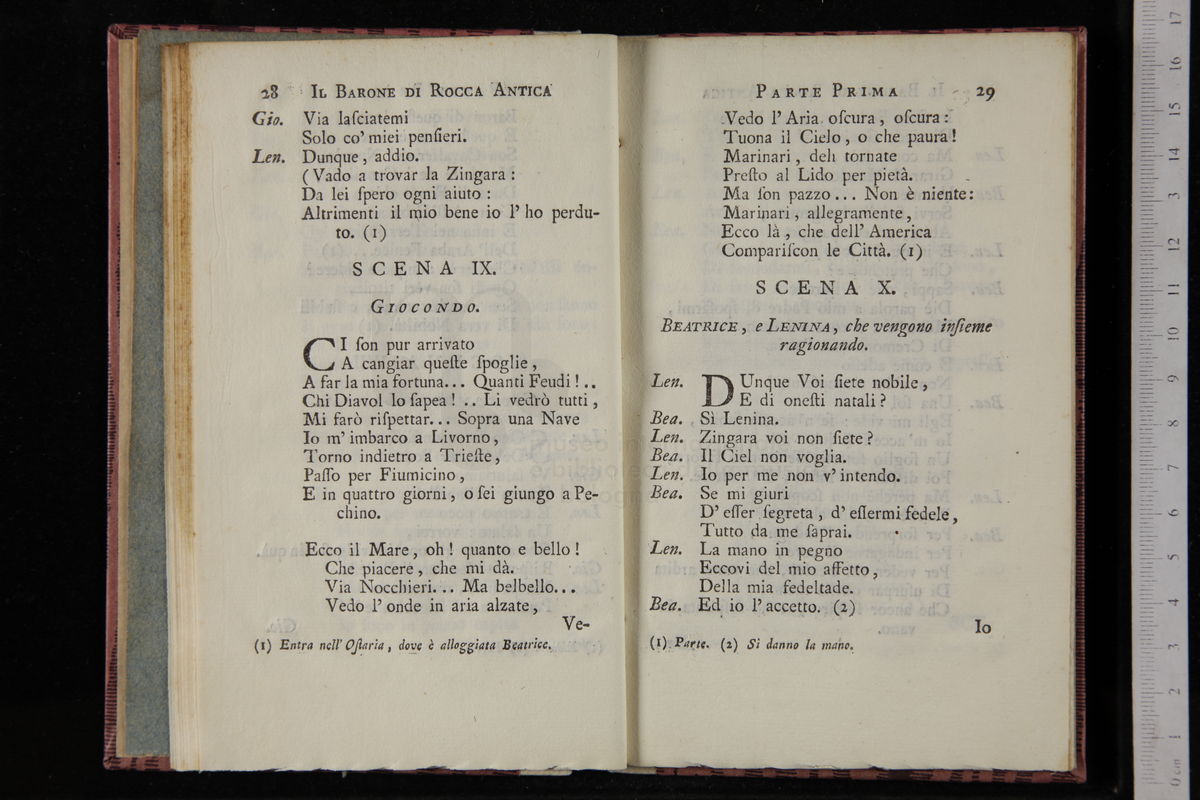 28 IL BARONE DI ROCCA ANTICA
Gio. Via laſciatemi
Solo co' miei penſieri.
Len. Dunque, addio.
(Vado a trovar la Zingara:
Da lei ſpero ogni aiuto:
Altrimenti il mio bene io l' ho perdu-
to. (1)
SCENA IX.
GIOCONDO.
CI ſon pur arrivato
A cangiar queſte ſpoglie,
A far la mia fortuna... Quanti Feudi!..
Chi Diavol lo ſapea! .. Li vedrò tutti,
Mi farò riſpettar... Sopra una Nave
Io m' imbarco a Livorno,
Torno indietro a Trieſte,
Paſſo per Fiumicino,
E in quattro giorni, o ſei giungo a Pe-
chino.
Ecco il Mare, oh! quanto e bello!
Che piacere, che mi dà.
Via Nocchieri... Ma belbello...
Vedo l' onde in aria alzate,
Ve-
(1) Entra nell' Oſtaria, dove è alloggiata Beatrice.
PARTE PRIMA 29
Vedo l' Aria oſcura, oſcura:
Tuona il Cielo, o che paura!
Marinari, deh tornate
Preſto al Lido per pietà.
Ma ſon pazzo... Non è niente:
Marinari, allegramente,
Ecco là, che dell' America
Compariſcon le Città. (1)
SCENA X.
BEATRICE, e LENINA, che vengono inſieme
ragionando.
Len. DUnque Voi ſiete nobile,
E di oneſti natali?
Bea. Sì Lenina.
Len. Zingara voi non ſiete?
Bea. Il Ciel non voglia.
Len. Io per me non v' intendo.
Bea. Se mi giuri
D' eſſer ſegreta, d' eſſermi fedele,
Tutto da me ſaprai.
Len. La mano in pegno
Eccovi del mio affetto,
Della mia fedeltade.
Bea. Ed io l' accetto. (2)
Io
(1) Parte. (2) Si danno la mano.
0 cm 1 2 3 4 5 6 7 8 9 10 11 12 13 14 15 16 17